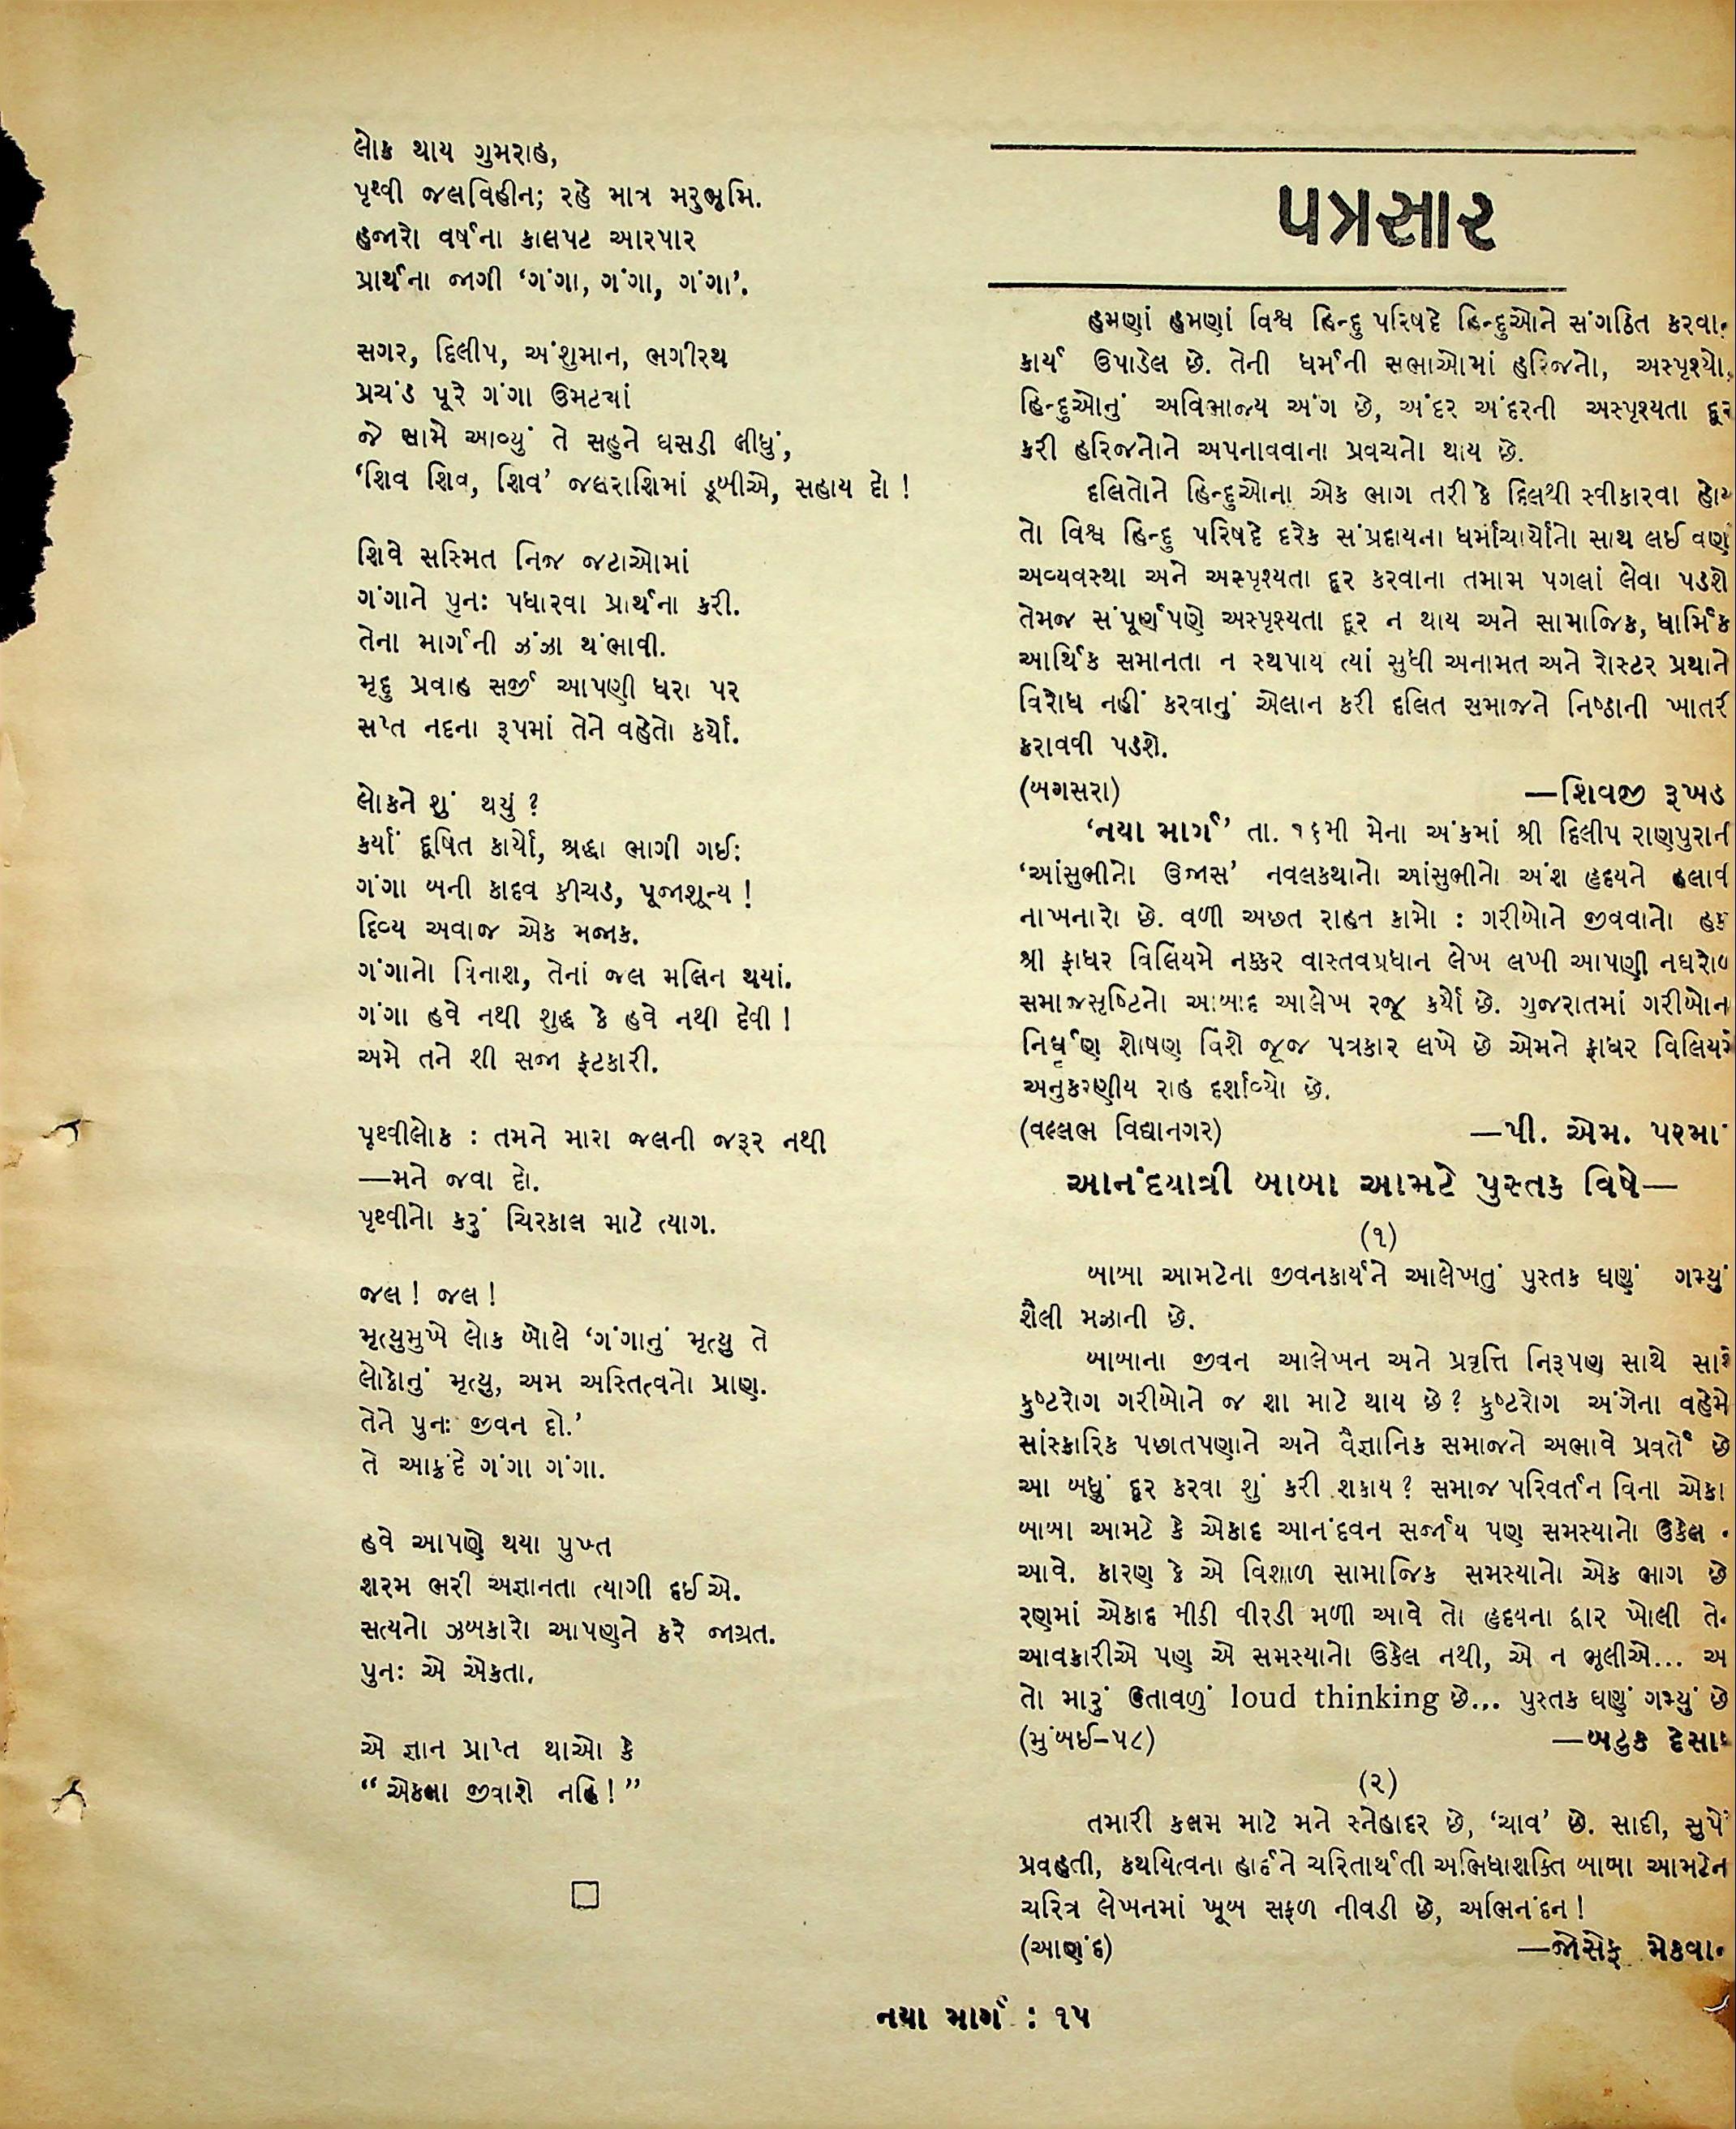 લોક થાય ગુમરાહ,
પૃથ્વી જલવિહીન; રહે માત્ર મરુભૂમિ.
હજારો વર્ષના કાલપટ આરપાર
પ્રાર્થના જાગી ‘ગંગા, ગંગા, ગંગા’.
સગર, દિલીપ, અંશુમાન, ભગીરથ
પ્રચંડ પૂરે ગંગા ઉમટચાં
જે સામે આવ્યું તે સહુને ઘસડી લીધું,
‘શિવ શિવ, શિવ’ જલરાશિમાં ડૂબીએ, સહાય દો !
શિવે સસ્મિત નિજ જટાઓમાં
ગંગાને પુનઃ પધારવા પ્રાર્થના કરી.
તેના માર્ગની ઝંઝા થંભાવી.
મૃદુ પ્રવાહ સર્જી આપણી ધરા પર
સપ્ત નદના રૂપમાં તેને વહેતો કર્યો.
લોકને શું થયું ?
કર્યાં દૂષિત કાર્યો, શ્રદ્ધા ભાગી ગઈ:
ગંગા બની કાદવ કીચડ, પૂજાશૂન્ય !
દિવ્ય અવાજ એક મજાક.
ગંગાનો વિનાશ, તેનાં જલ મલિન થયાં.
ગંગા હવે નથી શુદ્ધ કે હવે નથી દેવી !
અમે તને શી સજા ફટકારી.
પૃથ્વીલોક : તમને મારા જલની જરૂર નથી
—મને જવા દો.
પૃથ્વીનો કરું ચિરકાલ માટે ત્યાગ.
જલ ! જલ !
મૃત્યુમુખે લોક બોલે ‘ગંગાનું મૃત્યુ તે
લોકોનું મૃત્યુ, અમ અસ્તિત્વનો પ્રાણ.
તેને પુનઃ જીવન દો.’
તે આક્રંદે ગંગા ગંગા.
હવે આપણે થયા પુખ્ત
શરમ ભરી અજ્ઞાનતા ત્યાગી દઈએ.
સત્યનો ઝબકારો આપણને કરે જાગ્રત.
પુનઃ એ એકતા.
એ જ્ઞાન પ્રાપ્ત થાઓ કે
“એકલા જીવાશે નહિ !”
પત્રસાર
હમણાં હમણાં વિશ્વ હિન્દુ પરિષદે હિન્દુઓને સંગઠિત કરવા
કાર્ય ઉપાડેલ છે. તેની ધર્મની સભાઓમાં હરિજનો, અસ્પૃશ્યો,
હિન્દુઓનું અવિભાજ્ય અંગ છે, અંદર અંદરની અસ્પૃશ્યતા દૂર
કરી હરિજનોને અપનાવવાના પ્રવચનો થાય છે.
દલિતોને હિન્દુઓના એક ભાગ તરીકે દિલથી સ્વીકારવા હોય
તો વિશ્વ હિન્દુ પરિષદે દરેક સંપ્રદાયના ધર્માચાર્યોનો સાથ લઈ વર્ણ
અવ્યવસ્થા અને અસ્પૃશ્યતા દૂર કરવાના તમામ પગલાં લેવા પડશે
તેમજ સંપૂર્ણપણે અસ્પૃશ્યતા દૂર ન થાય અને સામાજિક, ધાર્મિક
આર્થિક સમાનતા ન સ્થપાય ત્યાં સુધી અનામત અને રોસ્ટર પ્રથાને
વિરોધ નહીં કરવાનું એલાન કરી દલિત સમાજને નિષ્ઠાની ખાતરી
કરાવવી પડશે.
(બગસરા) —શિવજી રૂખડ
‘નયા માર્ગ’ તા. ૧૬મી મેના અંકમાં શ્રી દિલીપ રાણપુરાની
‘આંસુભીનો ઉજાસ’ નવલકથાનો આંસુભીનો અંશ હૃદયને હલાવી
નાખનારો છે. વળી અછત રાહત કામો : ગરીબોને જીવવાનો હક
શ્રી ફાધર વિલિયમે નક્કર વાસ્તવપ્રધાન લેખ લખી આપણી નઘરોળ
સમાજસૃષ્ટિનો આબાદ આલેખ રજૂ કર્યો છે. ગુજરાતમાં ગરીબોન
નિર્ઘૃણ શોષણ વિશે જૂજ પત્રકાર લખે છે એમને ફાધર વિલિયમે
અનુકરણીય રાહ દર્શાવ્યો છે.
(વલ્લભ વિદ્યાનગર) —પી. એમ. પરમા
આનંદયાત્રી બાબા આમટે પુસ્તક વિષે—
(૧)
બાબા આમટેના જીવનકાર્યને આલેખતું પુસ્તક ઘણું ગમ્યું
શૈલી મઝાની છે.
બાબાના જીવન આલેખન અને પ્રવૃત્તિ નિરૂપણ સાથે સાથે
કુષ્ટરોગ ગરીબોને જ શા માટે થાય છે? કુષ્ટરોગ અંગેના વહેમે
સાંસ્કારિક પછાતપણાને અને વૈજ્ઞાનિક સમાજને અભાવે પ્રવર્તે છે
આ બધું દૂર કરવા શું કરી શકાય? સમાજ પરિવર્તન વિના એકા
બાબા આમટે કે એકાદ આનંદવન સર્જાય પણ સમસ્યાનો ઉકેલ
આવે. કારણ કે એ વિશાળ સામાજિક સમસ્યાનો એક ભાગ છે
રણમાં એકાદ મીઠી વીરડી મળી આવે તો હૃદયના દ્વાર ખોલી તે
આવકારીએ પણ એ સમસ્યાનો ઉકેલ નથી, એ ન ભૂલીએ... અ
તો મારું ઉતાવળું loud thinking છે... પુસ્તક ઘણું ગમ્યું છે
(મુંબઈ-૫૮) —બટુક દેસા
(૨)
તમારી કલમ માટે મને સ્નેહાદર છે, ‘ચાવ’ છે. સાદી, સુપે
પ્રવહતી, કથયિત્વના હાર્દને ચરિતાર્થતી અભિધાશક્તિ બાબા આમટેન
ચરિત્ર લેખનમાં ખૂબ સફળ નીવડી છે, અભિનંદન !
(આણંદ) —જોસેફ મેકવા
નયા માર્ગ : ૧૫